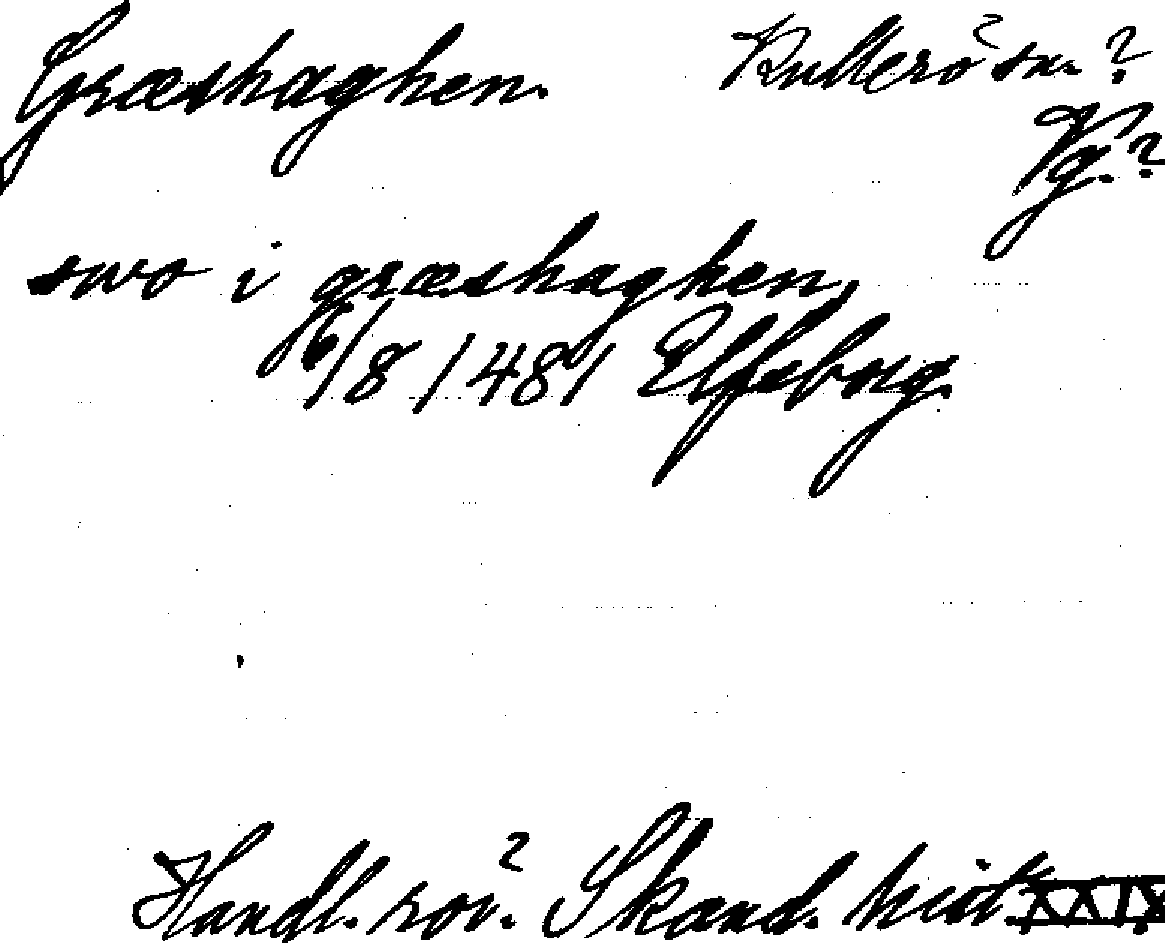 Græshaghen. Kullerö sn.?
Vg.?
swo i græshaghen,
16/8 1481 Elfsborg.
Handl. rör. Skand. hist. XXIX